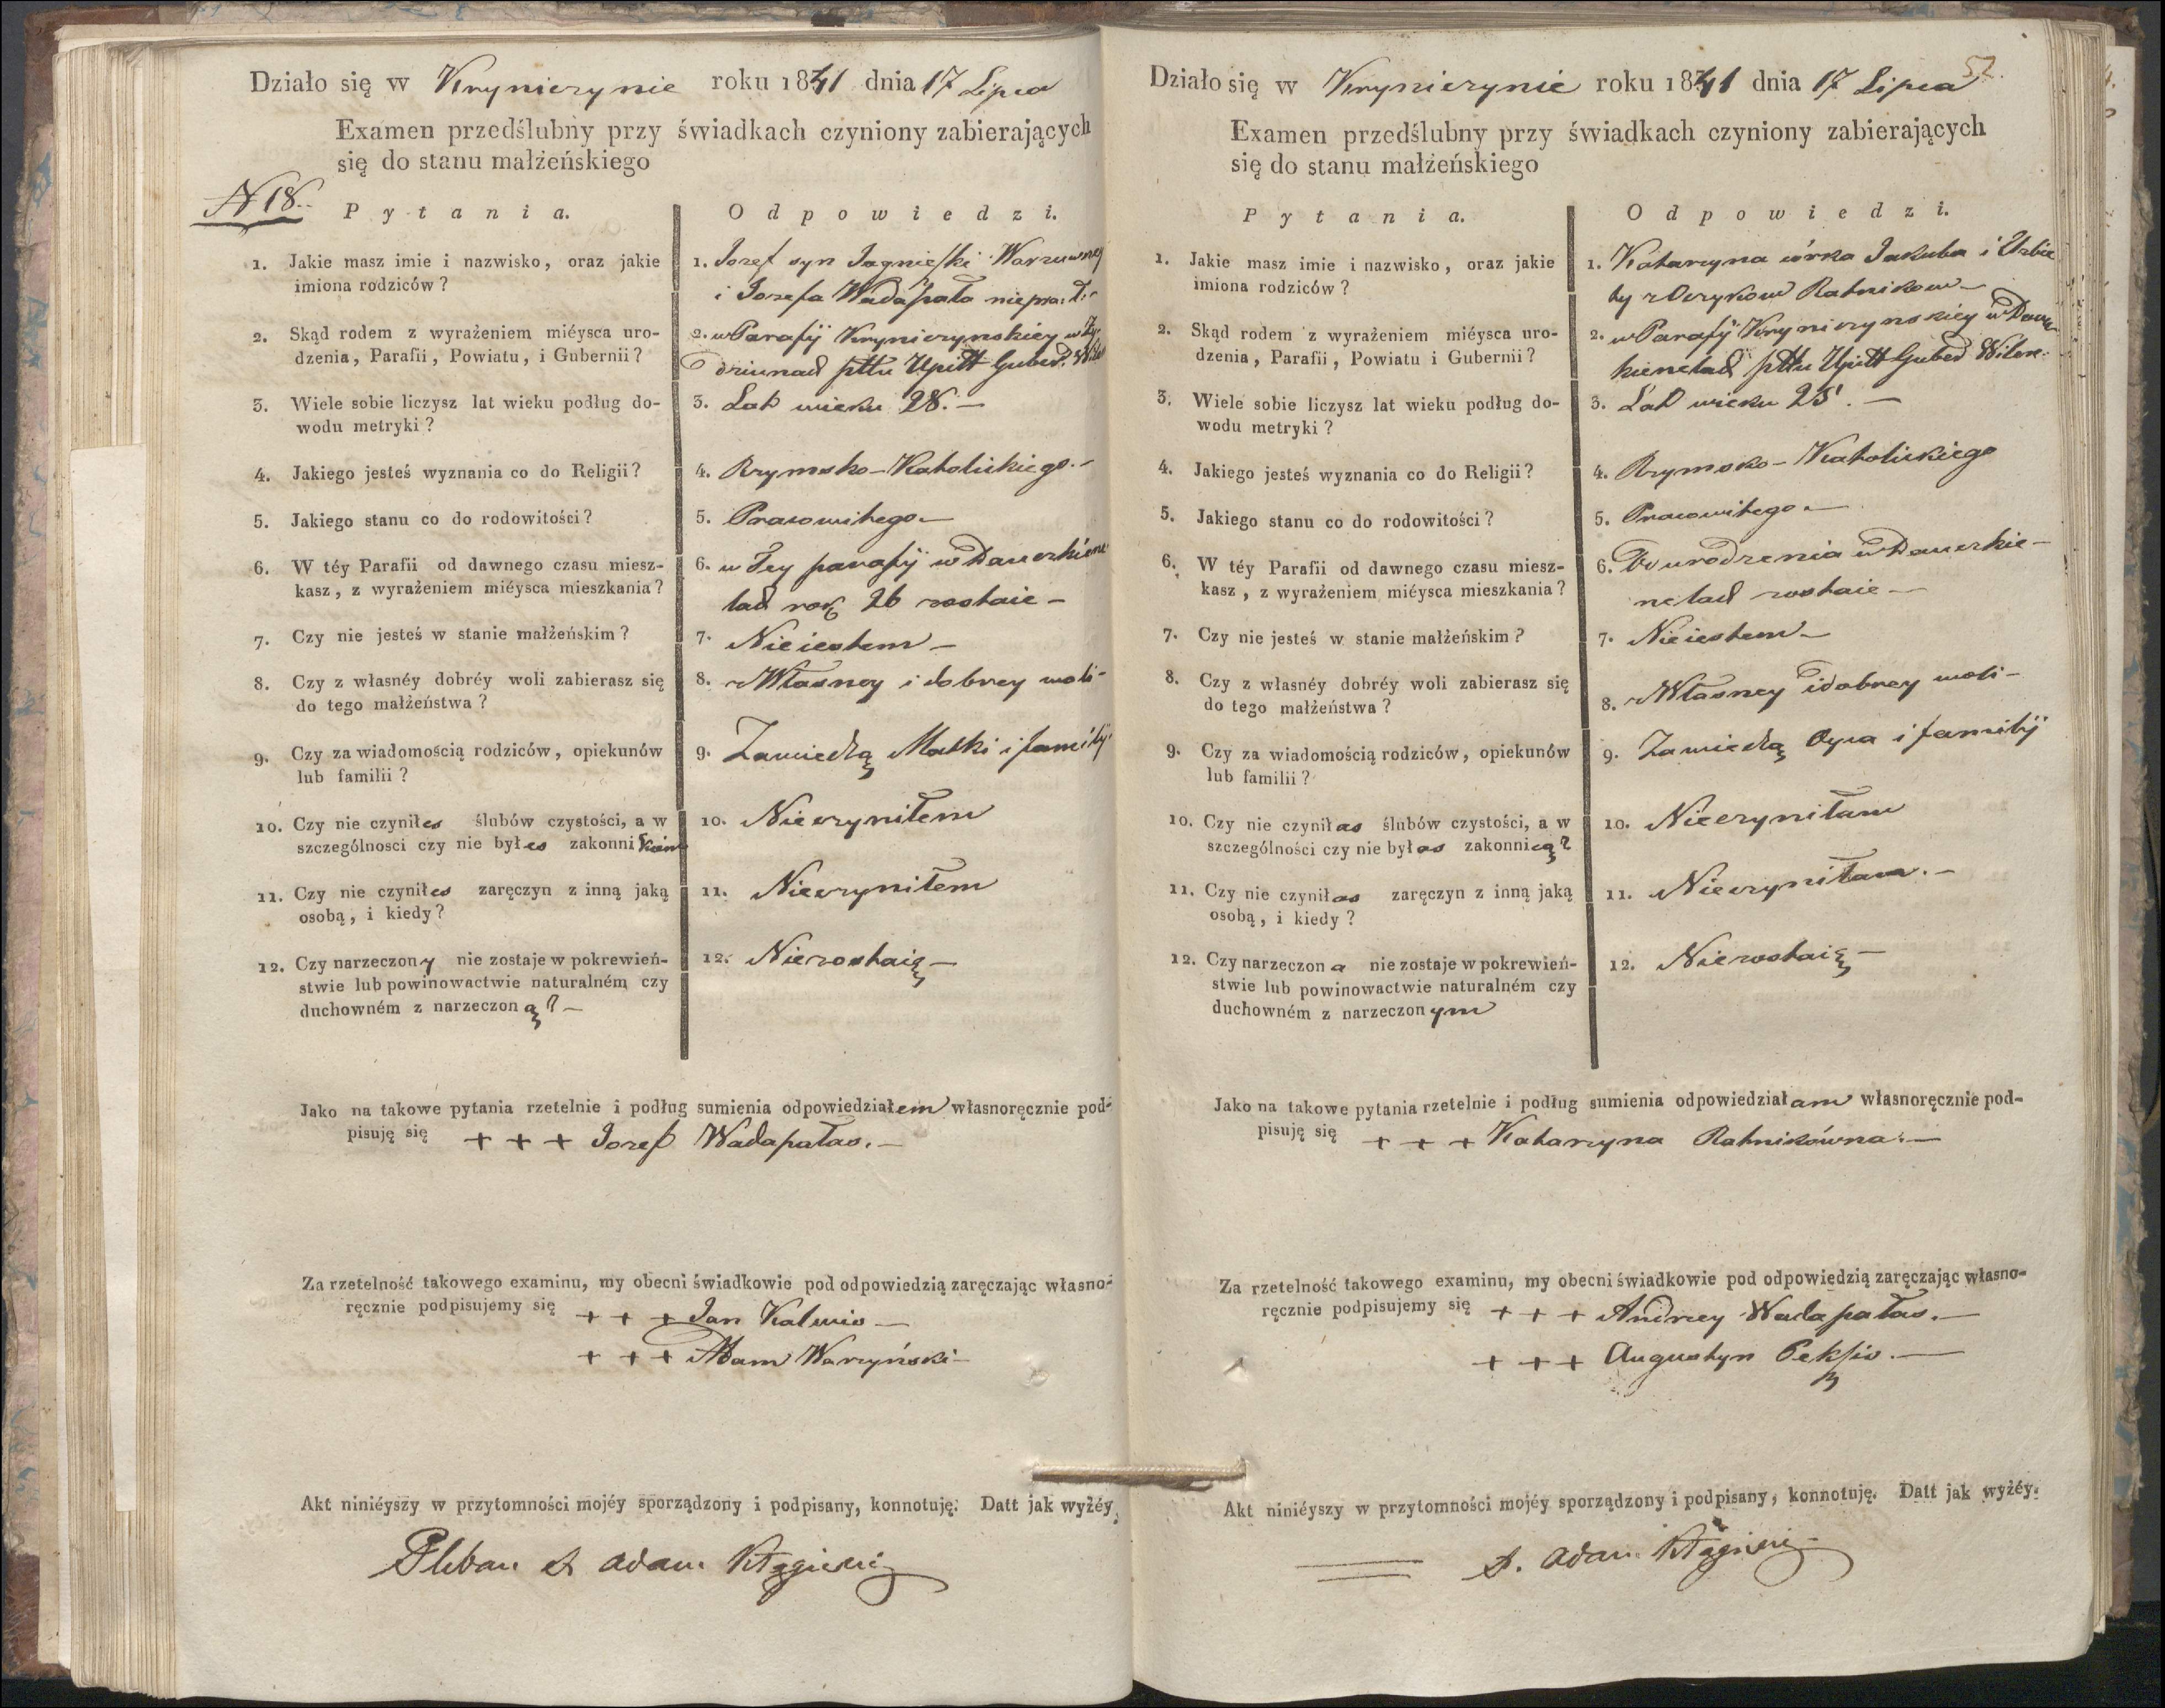 Działo się w Kryniczynie roku 1841 dnia 17 Lipca
Examen przedślubny przy świadkach czyniony zabierających
się do stanu małżeńskiego
N 18.
Pytania.
Odpowiedzi.
1. Jakie masz imie i nazwisko, oraz jakie
imiona rodziców?
1. Jozef syn Jagnieszki
i Jozefa Wadapała
2. Skąd rodem z wyrażeniem miéysca uro-
dzenia, Parafii, Powiatu, i Gubernii?
2. w Parafij Kryniczynskiey w
pttu Upitt Guber.
3. Wiele sobie liczysz lat wieku podług do-
wodu metryki?
3. Lat wieku 28. —
4. Jakiego jesteś wyznania co do Religii?
4. Rzymsko-Katolickiego. -
5. Jakiego stanu co do rodowitości?
5. Pracowitego —
6. W téy Parafii od dawnego czasu miesz-
kasz, z wyrażeniem miéysca mieszkania?
6. w Tey parafij w
rok 26 zostaie —
7. Czy nie jesteś w stanie małżeńskim?
7. Nieiestem —
8. Czy z własnéy dobréy woli zabierasz się
do tego małżeństwa?
8. z Własney i dobrey woli -
9. Czy za wiadomością rodziców, opiekunów
lub familii?
9. Zawiedzą Matki i familij
10. Czy nie czyniłes ślubów czystości, a w
szczególnosci czy nie byłes zakonnikiem
10. Nieczyniłem
11. Czy nie czyniłes zaręczyn z inną jaką
osobą, i kiedy?
11. Nieczyniłem
12. Czy narzeczony nie zostaje w pokrewień-
stwie lub powinowactwie naturalném czy
duchowném z narzeczoną? —
12. Niezostaią —
Jako na takowe pytania rzetelnie i podług sumienia odpowiedziałem własnoręcznie pod-
pisuję się + + + Jozef Wadapałas. —
Za rzetelność takowego examinu, my obecni świadkowie pod odpowiedzią zaręczając własno-
ręcznie podpisujemy się + + + Jan Kalwis —
+ + + Adam Warzyński —
Akt niniéyszy w przytomności mojéy sporządzony i podpisany, konnotuję. Datt jak wyżéy.
Pleban X Adam
52.
Działo się w Kryniczynie roku 1841 dnia 17 Lipca
Examen przedślubny przy świadkach czyniony zabierających
się do stanu małżeńskiego
Pytania.
Odpowiedzi.
1. Jakie masz imie i nazwisko, oraz jakie
imiona rodziców?
1. Katarzyna córka Jakuba i Elzbie
ty z Ratnikow —
2. Skąd rodem z wyrażeniem miéysca uro-
dzenia, Parafii, Powiatu i Gubernii?
2. w Parafij Kryniczynskiey w
pttu Upitt Guber Wilen:
3. Wiele sobie liczysz lat wieku podług do-
wodu metryki?
3. Lat wieku 25. —
4. Jakiego jesteś wyznania co do Religii?
4. Rzymsko-Katolickiego
5. Jakiego stanu co do rodowitości?
5. Pracowitego —
6. W téy Parafii od dawnego czasu miesz-
kasz, z wyrażeniem miéysca mieszkania?
6. Od urodzenia w
zostaie —
7. Czy nie jesteś w stanie małżeńskim?
7. Nieiestem —
8. Czy z własnéy dobréy woli zabierasz się
do tego małżeństwa?
8. z Własney i dobrey woli —
9. Czy za wiadomością rodziców, opiekunów
lub familii?
9. Zawiedzą Oyca i familij
10. Czy nie czyniłas ślubów czystości, a w
szczególności czy nie byłas zakonnicą?
10. Nieczyniłam
11. Czy nie czyniłas zaręczyn z inną jaką
osobą, i kiedy?
11. Nieczyniłam. —
12. Czy narzeczona nie zostaje w pokrewień-
stwie lub powinowactwie naturalném czy
duchowném z narzeczonym
12. Niezostaią —
Jako na takowe pytania rzetelnie i podług sumienia odpowiedziałam własnoręcznie pod-
pisuję się + + + Katarzyna Ratnikówna. —
Za rzetelność takowego examinu, my obecni świadkowie pod odpowiedzią zaręczając własno-
ręcznie podpisujemy się + + + Andrzey Wadapałas. —
+ + + Augustyn Pekszis. —
Akt niniéyszy w przytomności mojéy sporządzony i podpisany, konnotuję. Datt jak wyżéy.
X. Adam